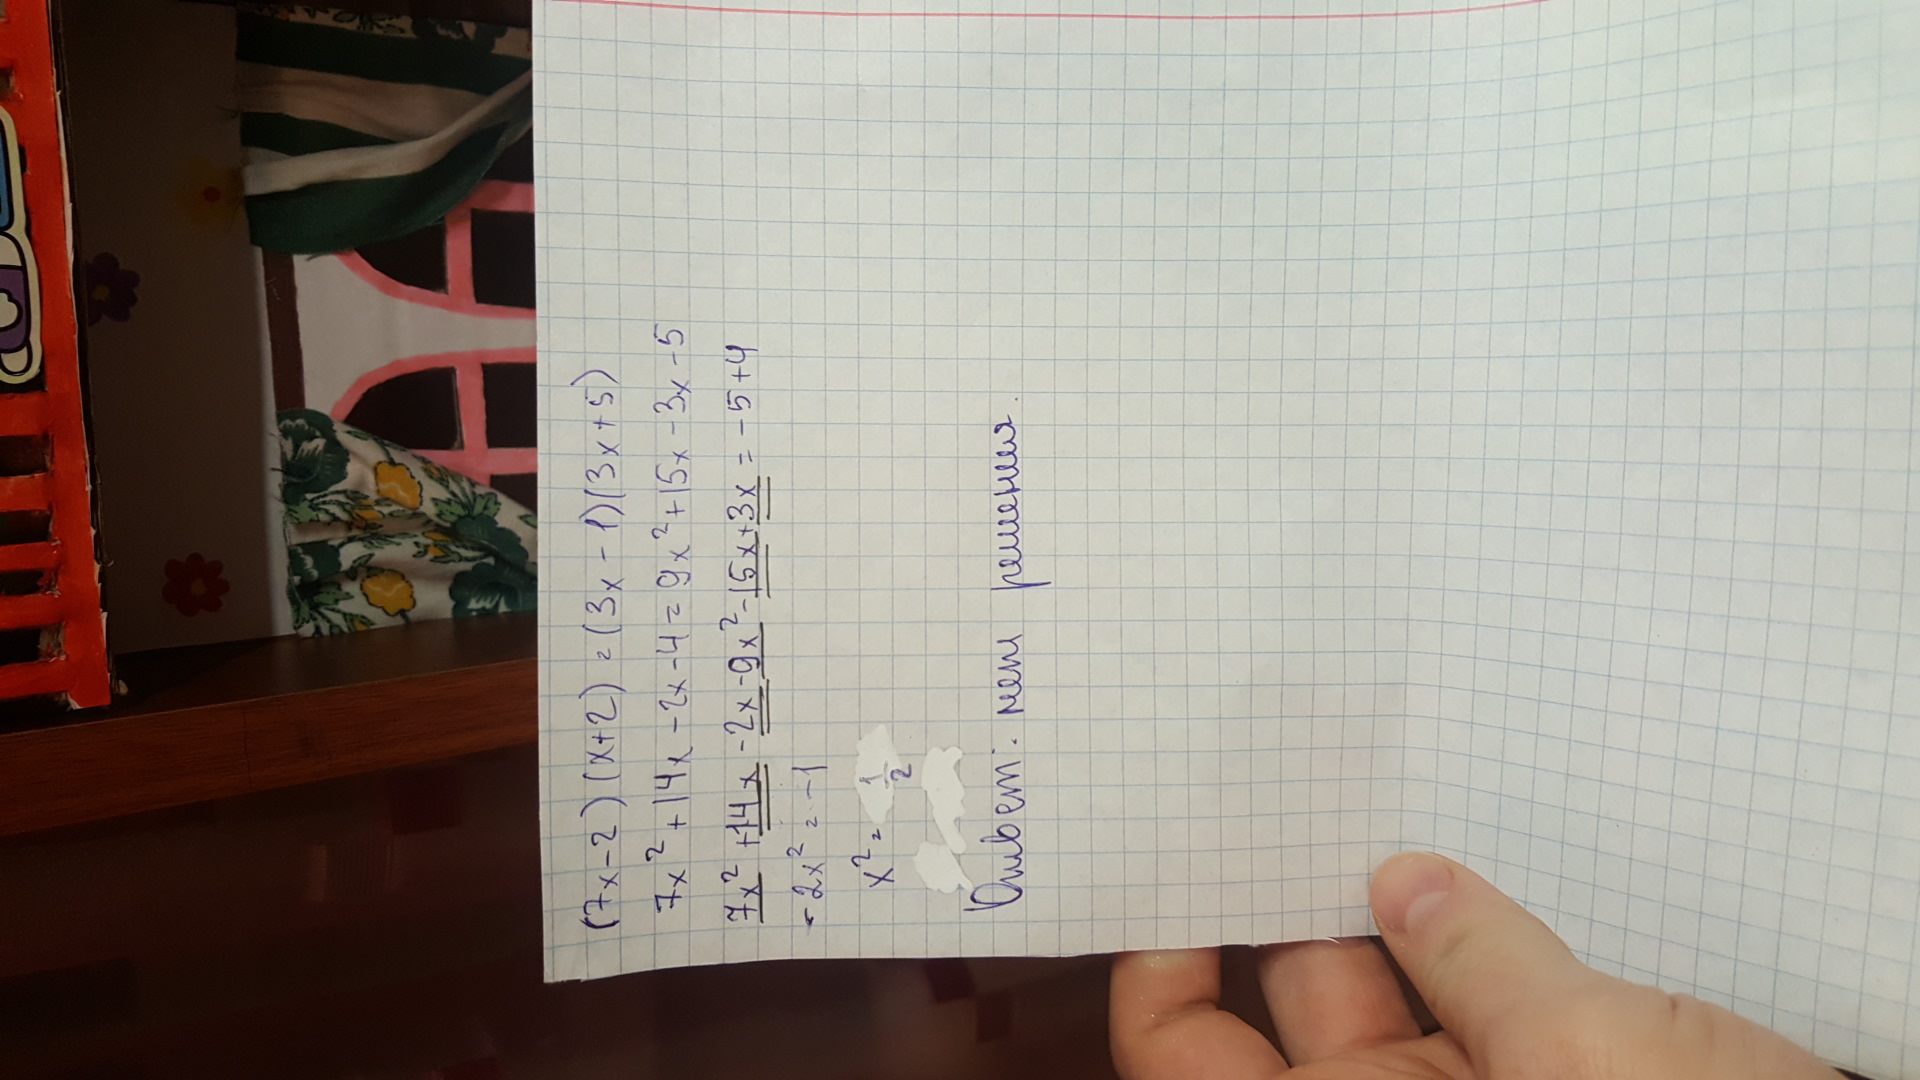 (7x-2)(x+2)=(3x-1)(3x+5)
7x²+14x-2x-4=9x²+15x-3x-5
7x²+14x-2x-9x²-15x+3x=-5+4
-2x²=-1
x²=1/2
Ответ: нет решения.